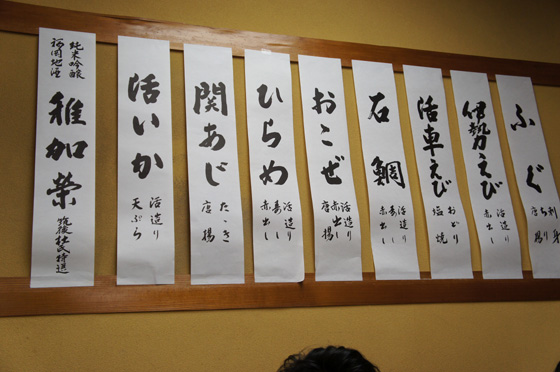 ふぐ
刺身
ちり
伊勢えび
活造り
赤出し
活車えび
おどり
塩焼
石鯛
活造り
赤出し
おこぜ
活造り
赤出し
唐揚
ひらめ
活造り
赤出し
関あじ
たゝき
唐揚
活いか
活造り
天ぷら
純米吟醸
福岡地酒
稚加榮
筑後杜氏特選